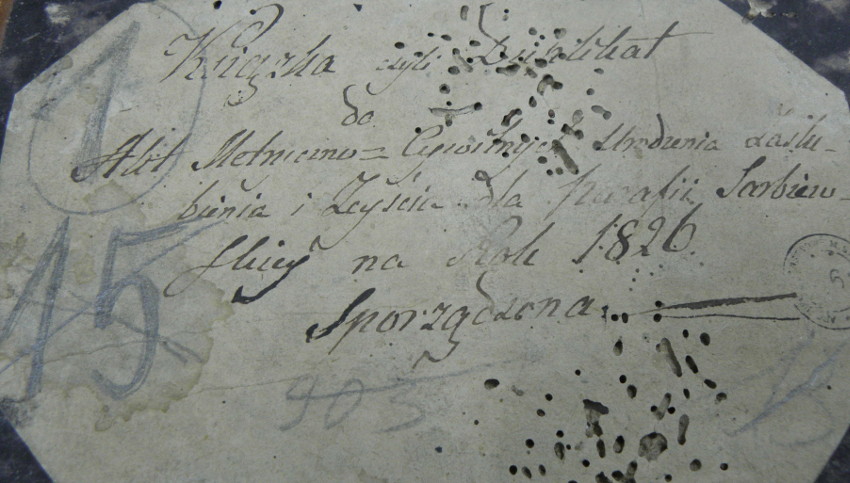 1
Książka czyli Duplikat
do
Akt Metriczno= Cywilnych Urodzenia zaślu-
bienia i Zeyścia dla Parafii Sarbiew-
skiey na Rok 1826
Sporządzona.
15
903